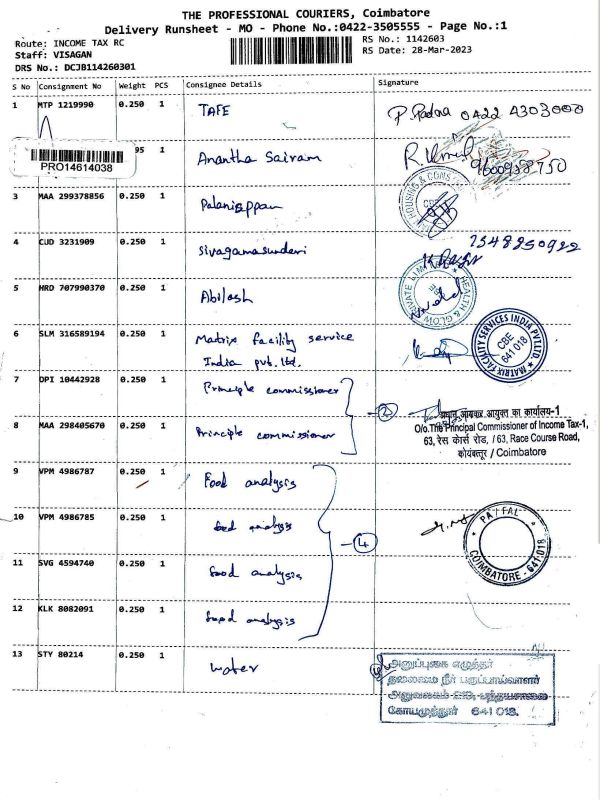 THE PROFESSIONAL COURIERS, Coimbatore
Delivery Runsheet - MO - Phone No.:0422-3505555 - Page No.:1
Route: INCOME TAX RC
Staff: VISAGAN
DRS No.: DCJB114260301
RS No.: 1142603
RS Date: 28-Mar-2023
S No Consignment No Weight PCS Consignee Details Signature
1 MTP 1219990 0.250 1 TAFE P. Padma 0422 4303000
95 1 Anantha Sairam 9600988750
PRO14614038
3 MAA 299378856 0.250 1 Palaniappan
HOUSING & CONST
CBE
4 CUD 3231909 0.250 1 Sivagamasundari 7548250922
5 MRD 707990370 0.250 1 Abilash
HEALTH & GLOW PRIVATE LIMITED
6 SLM 316589194 0.250 1 Matrix facility service
India pvt. ltd.
MATRIX FACILITY SERVICES INDIA PVT LTD.
CBE
641 018
7 DPI 10442928 0.250 1 Principle commissioner
2
प्रधान आयकर आयुक्त का कार्यालय-1
O/o.The Principal Commissioner of Income Tax-1,
63, रेस कोर्स रोड, / 63, Race Course Road,
कोयंबत्तूर / Coimbatore
8 MAA 298405670 0.250 1 Principle commissioner
9 VPM 4986787 0.250 1 Food analysis
10 VPM 4986785 0.250 1 food analysis
4
COIMBATORE - 641 018
11 SVG 4594740 0.250 1 food analysis
12 KLK 8082091 0.250 1 food analysis
13 STY 80214 0.250 1 water
அனுப்புகை எழுத்தர்
தலைமை நீர் பகுப்பாய்வாளர்
அலுவலகம் 219, பந்தயசாலை
கோயமுத்தூர் 641 018.